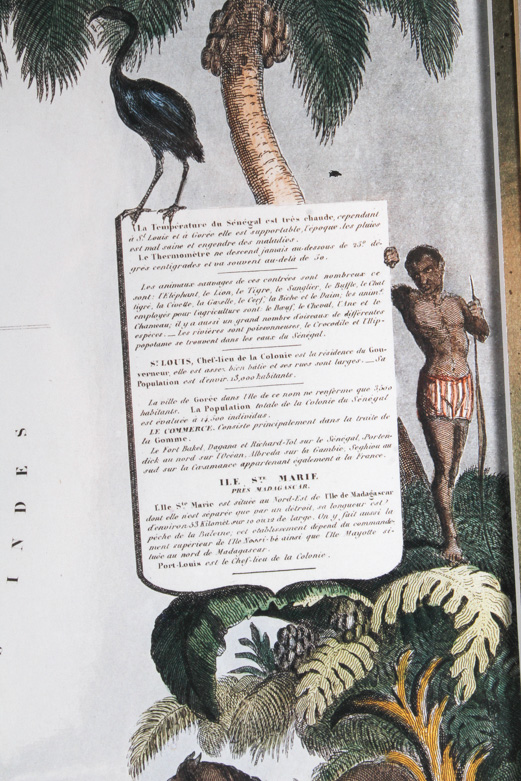 La Température du Sénégal est très chaude, cependant
à St. Louis et à Gorée elle est supportable, l'époque des pluies
est mal saine et engendre des maladies.
Le Thermomètre ne descend jamais au-dessous de 25º de-
grés centigrades et va souvent au-delà de 30.
Les animaux sauvages de ces contrées sont nombreux ce
sont: l'Eléphant, le Lion, le Tigre, le Sanglier, le Buffle, le Chat
tigre, la Civette, la Gazelle, le Cerf, la Biche et le Daim, les anim.x
employés pour l'agriculture sont le Bœuf, le Cheval, l'Ane et le
Chameau; il y a aussi un grand nombre d'oiseaux de différentes
espèces. — Les rivières sont poissonneuses, le Crocodile et l'Hip-
popotame se trouvent dans les eaux du Sénégal.
St. LOUIS, Chef-lieu de la Colonie est la résidence du Gou-
verneur, elle est assez bien bâtie et ses rues sont larges. — Sa
Population est d'envir. 13,000 habitants.
La ville de Gorée dans l'Ile de ce nom ne renferme que 3,500
habitants. La Population totale de la Colonie du Sénégal
est évaluée à 14,500 individus.
LE COMMERCE. Consiste principalement dans la traite de
la Gomme.
Le Fort Bakel, Dagana et Richard-Tol sur le Sénégal, Porten-
dick au nord sur l'Océan, Albreda sur la Gambie, Seghiou au
sud sur la Casamance appartenant également à la France.
ILE Ste. MARIE
PRÈS MADAGASCAR.
L'Ile Ste. Marie est située au Nord-Est de l'Ile de Madagascar
dont elle n'est séparée que par un détroit, sa longueur est
d'environ 55 Kilomèt. sur 10 ou 12 de large. On y fait aussi la
pêche de la Baleine, cet établissement dépend du commande-
ment supérieur de l'Ile Nossi-bé ainsi que l'Ile Mayotte si-
tuée au nord de Madagascar.
Port-Louis est le Chef-lieu de la Colonie.
INDES